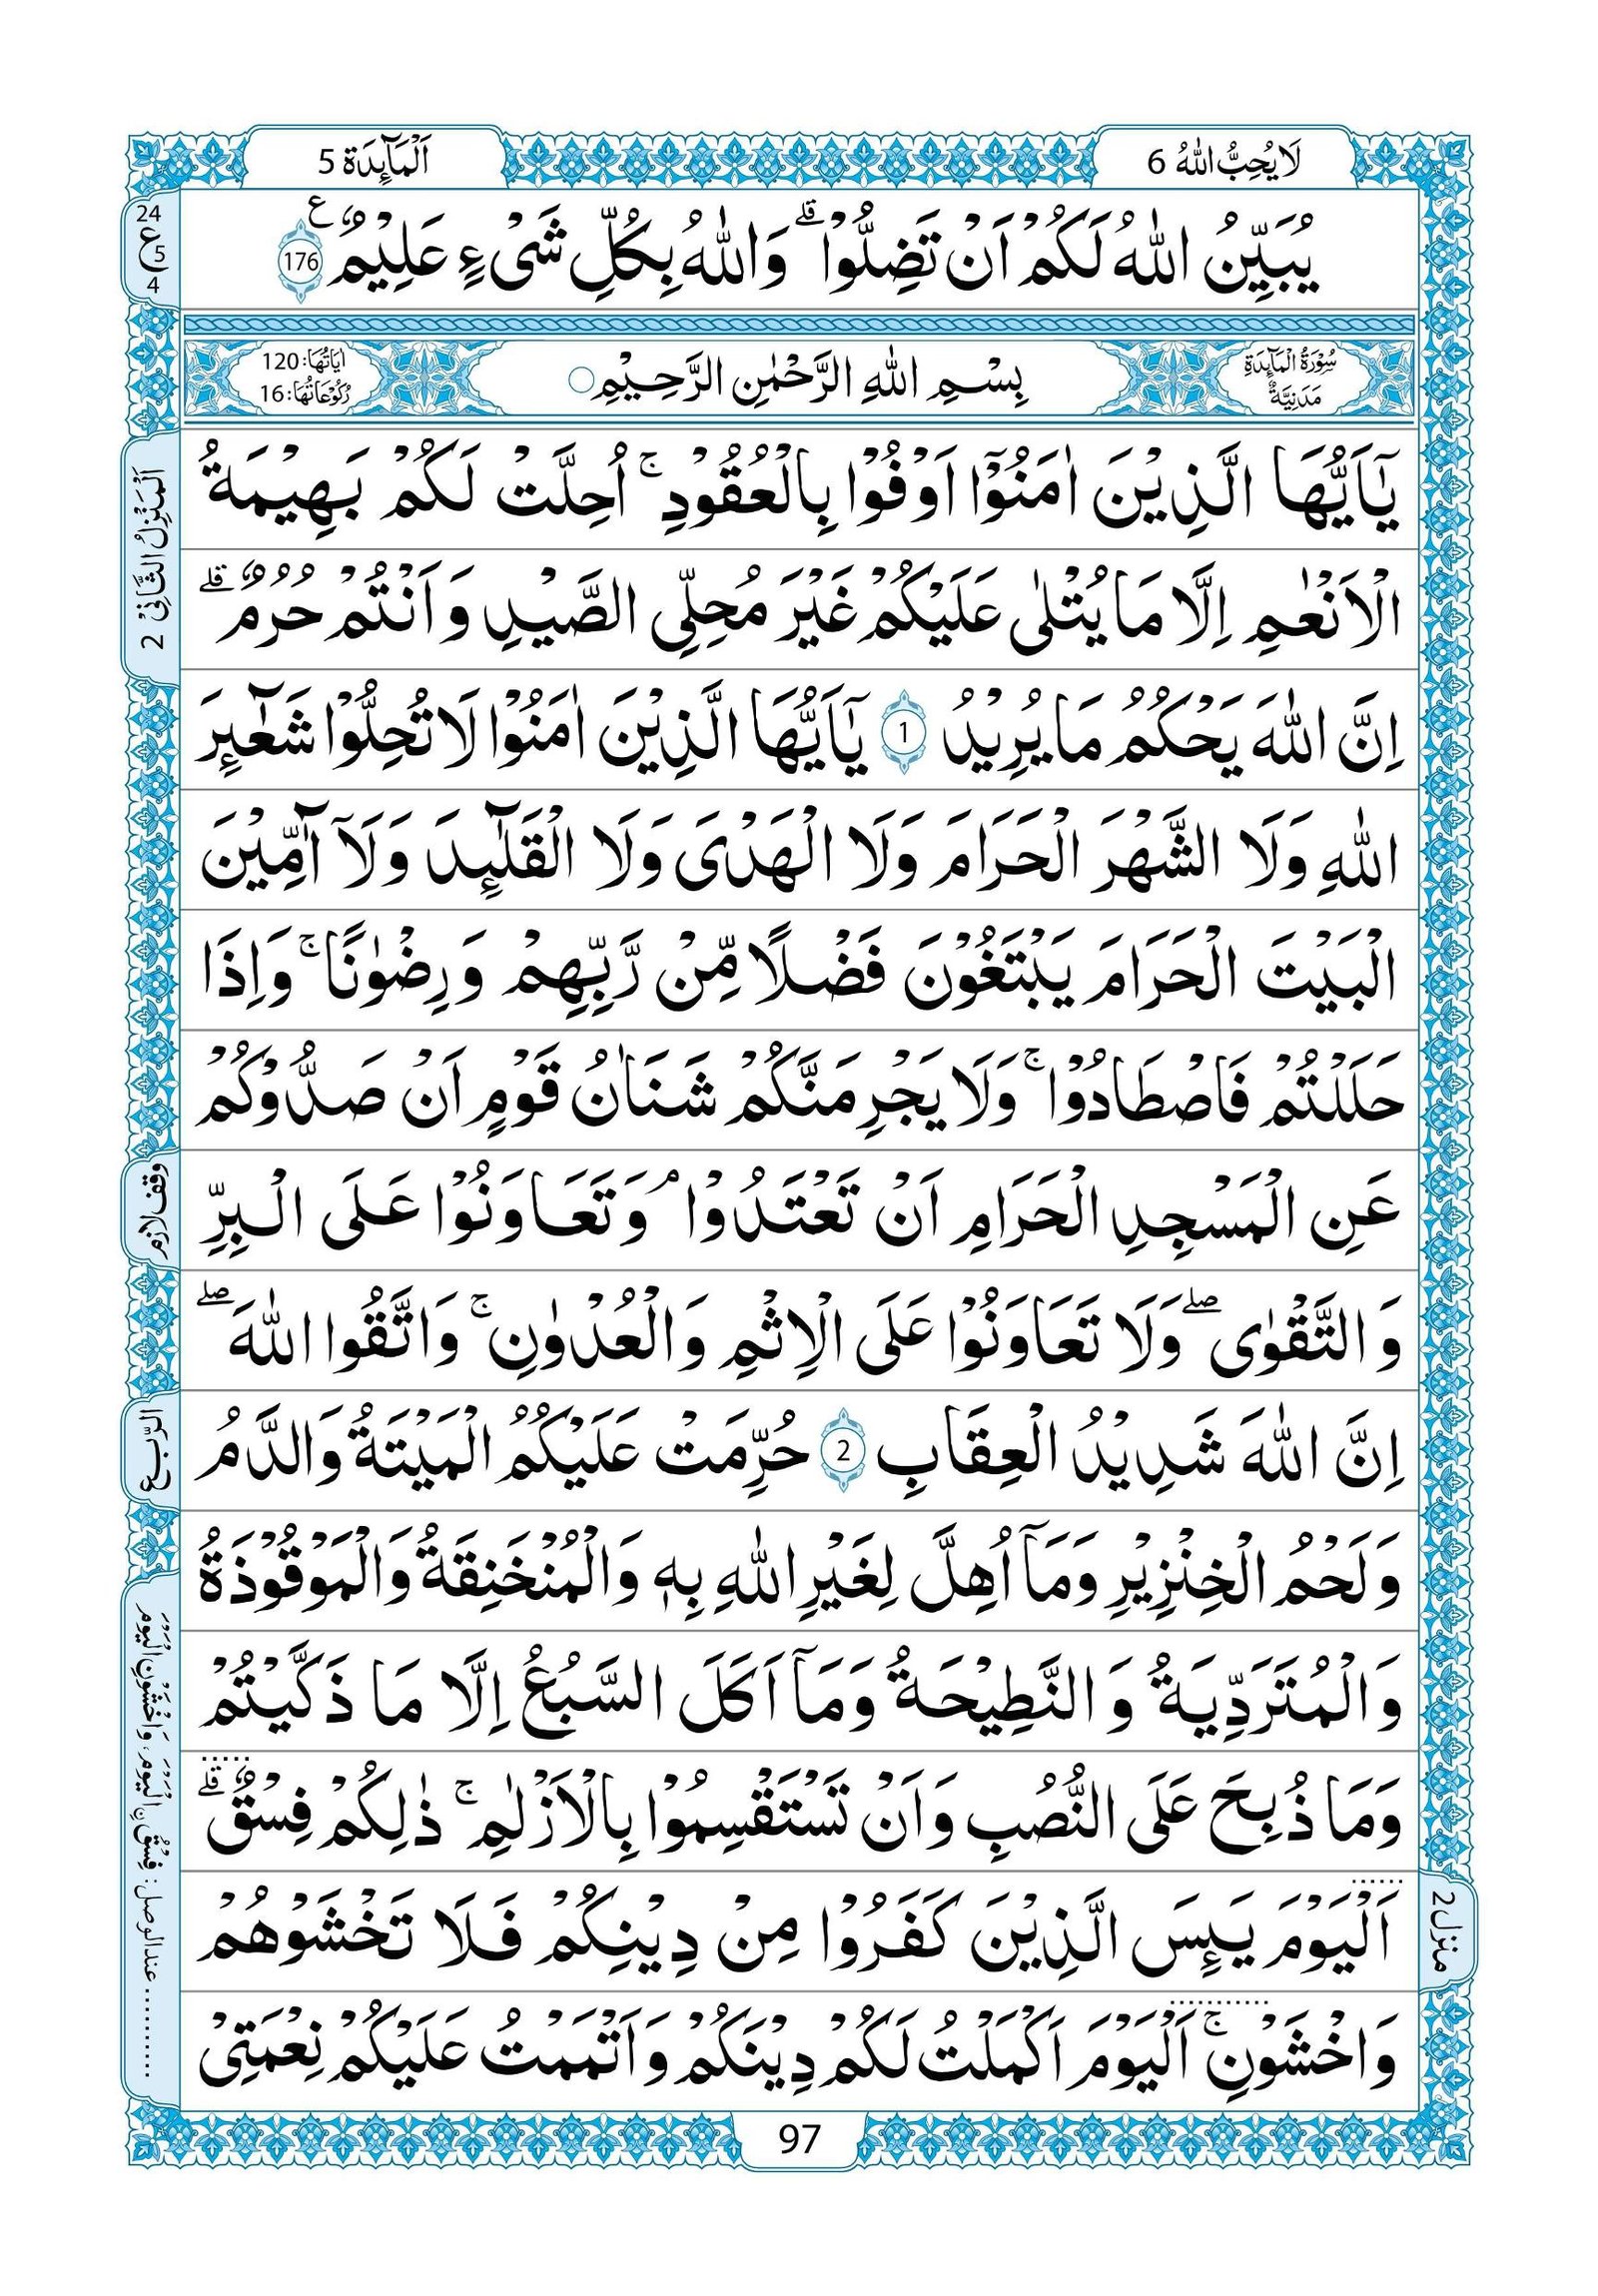 لَا يُحِبُّ اللّٰهُ 6
اَلْمَآئِدَة 5
يُبَيِّنُ اللّٰهُ لَكُمْ اَنْ تَضِلُّوْا ؕ وَاللّٰهُ بِكُلِّ شَیْءٍ عَلِيْمٌ 176
24
ع 5
4
سُوْرَةُ الْمَآئِدَةِ
مَدَنِيَّةٌ
بِسْمِ اللّٰهِ الرَّحْمٰنِ الرَّحِيْمِ ○
اٰيَاتُهَا: 120
رُكُوْعَاتُهَا: 16
يٰۤاَيُّهَا الَّذِيْنَ اٰمَنُوْۤا اَوْفُوْا بِالْعُقُوْدِ ۚ اُحِلَّتْ لَكُمْ بَهِيْمَةُ
الْاَنْعٰمِ اِلَّا مَا يُتْلٰى عَلَيْكُمْ غَيْرَ مُحِلِّى الصَّيْدِ وَاَنْتُمْ حُرُمٌ ۗ
اِنَّ اللّٰهَ يَحْكُمُ مَا يُرِيْدُ 1 يٰۤاَيُّهَا الَّذِيْنَ اٰمَنُوْا لَا تُحِلُّوْا شَعٰٓئِرَ
اللّٰهِ وَلَا الشَّهْرَ الْحَرَامَ وَلَا الْهَدْىَ وَلَا الْقَلٰٓئِدَ وَلَاۤ آٰمِّيْنَ
الْبَيْتَ الْحَرَامَ يَبْتَغُوْنَ فَضْلًا مِّنْ رَّبِّهِمْ وَرِضْوٰنًا ۚ وَاِذَا
حَلَلْتُمْ فَاصْطَادُوْا ۚ وَلَا يَجْرِمَنَّكُمْ شَنَاٰنُ قَوْمٍ اَنْ صَدُّوْكُمْ
عَنِ الْمَسْجِدِ الْحَرَامِ اَنْ تَعْتَدُوْا ۘ وَتَعَاوَنُوْا عَلَى الْبِرِّ
وَالتَّقْوٰى ۖ وَلَا تَعَاوَنُوْا عَلَى الْاِثْمِ وَالْعُدْوٰنِ ۚ وَاتَّقُوا اللّٰهَ ۖ
اِنَّ اللّٰهَ شَدِيْدُ الْعِقَابِ 2 حُرِّمَتْ عَلَيْكُمُ الْمَيْتَةُ وَالدَّمُ
وَلَحْمُ الْخِنْزِيْرِ وَمَاۤ اُهِلَّ لِغَيْرِ اللّٰهِ بِهٖ وَالْمُنْخَنِقَةُ وَالْمَوْقُوْذَةُ
وَالْمُتَرَدِّيَةُ وَالنَّطِيْحَةُ وَمَاۤ اَكَلَ السَّبُعُ اِلَّا مَا ذَكَّيْتُمْ
وَمَا ذُبِحَ عَلَى النُّصُبِ وَاَنْ تَسْتَقْسِمُوْا بِالْاَزْلٰمِ ۚ ذٰلِكُمْ فِسْقٌ ۗ
اَلْيَوْمَ يَئِسَ الَّذِيْنَ كَفَرُوْا مِنْ دِيْنِكُمْ فَلَا تَخْشَوْهُمْ
وَاخْشَوْنِ ۚ اَلْيَوْمَ اَكْمَلْتُ لَكُمْ دِيْنَكُمْ وَاَتْمَمْتُ عَلَيْكُمْ نِعْمَتِىْ
اَلْمَنْزِلُ الثَّانِىْ 2
وقف لازم
الرّبع
عند الوصل: فِسْقُ نِ الْيَوْمَ، وَاخْشَوْنِ الْيَوْمَ
منزل 2
97